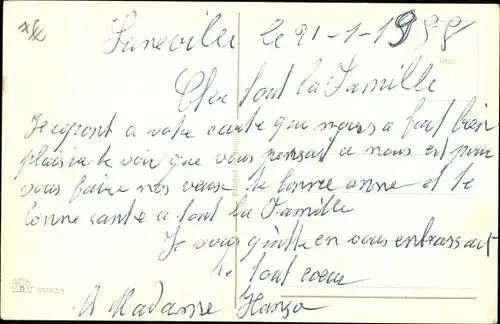 Luneville le 21-1-1958
Cher tout la Famille
Je repont a votre carte que nous a fait bien
plaisir te voir que vous pensat a nous et pour
vous faire nos veux te bonne anne et te
bonne sante a tout la Famille
Je vous quitte en vous embrassant
te tout cœur
M Madame